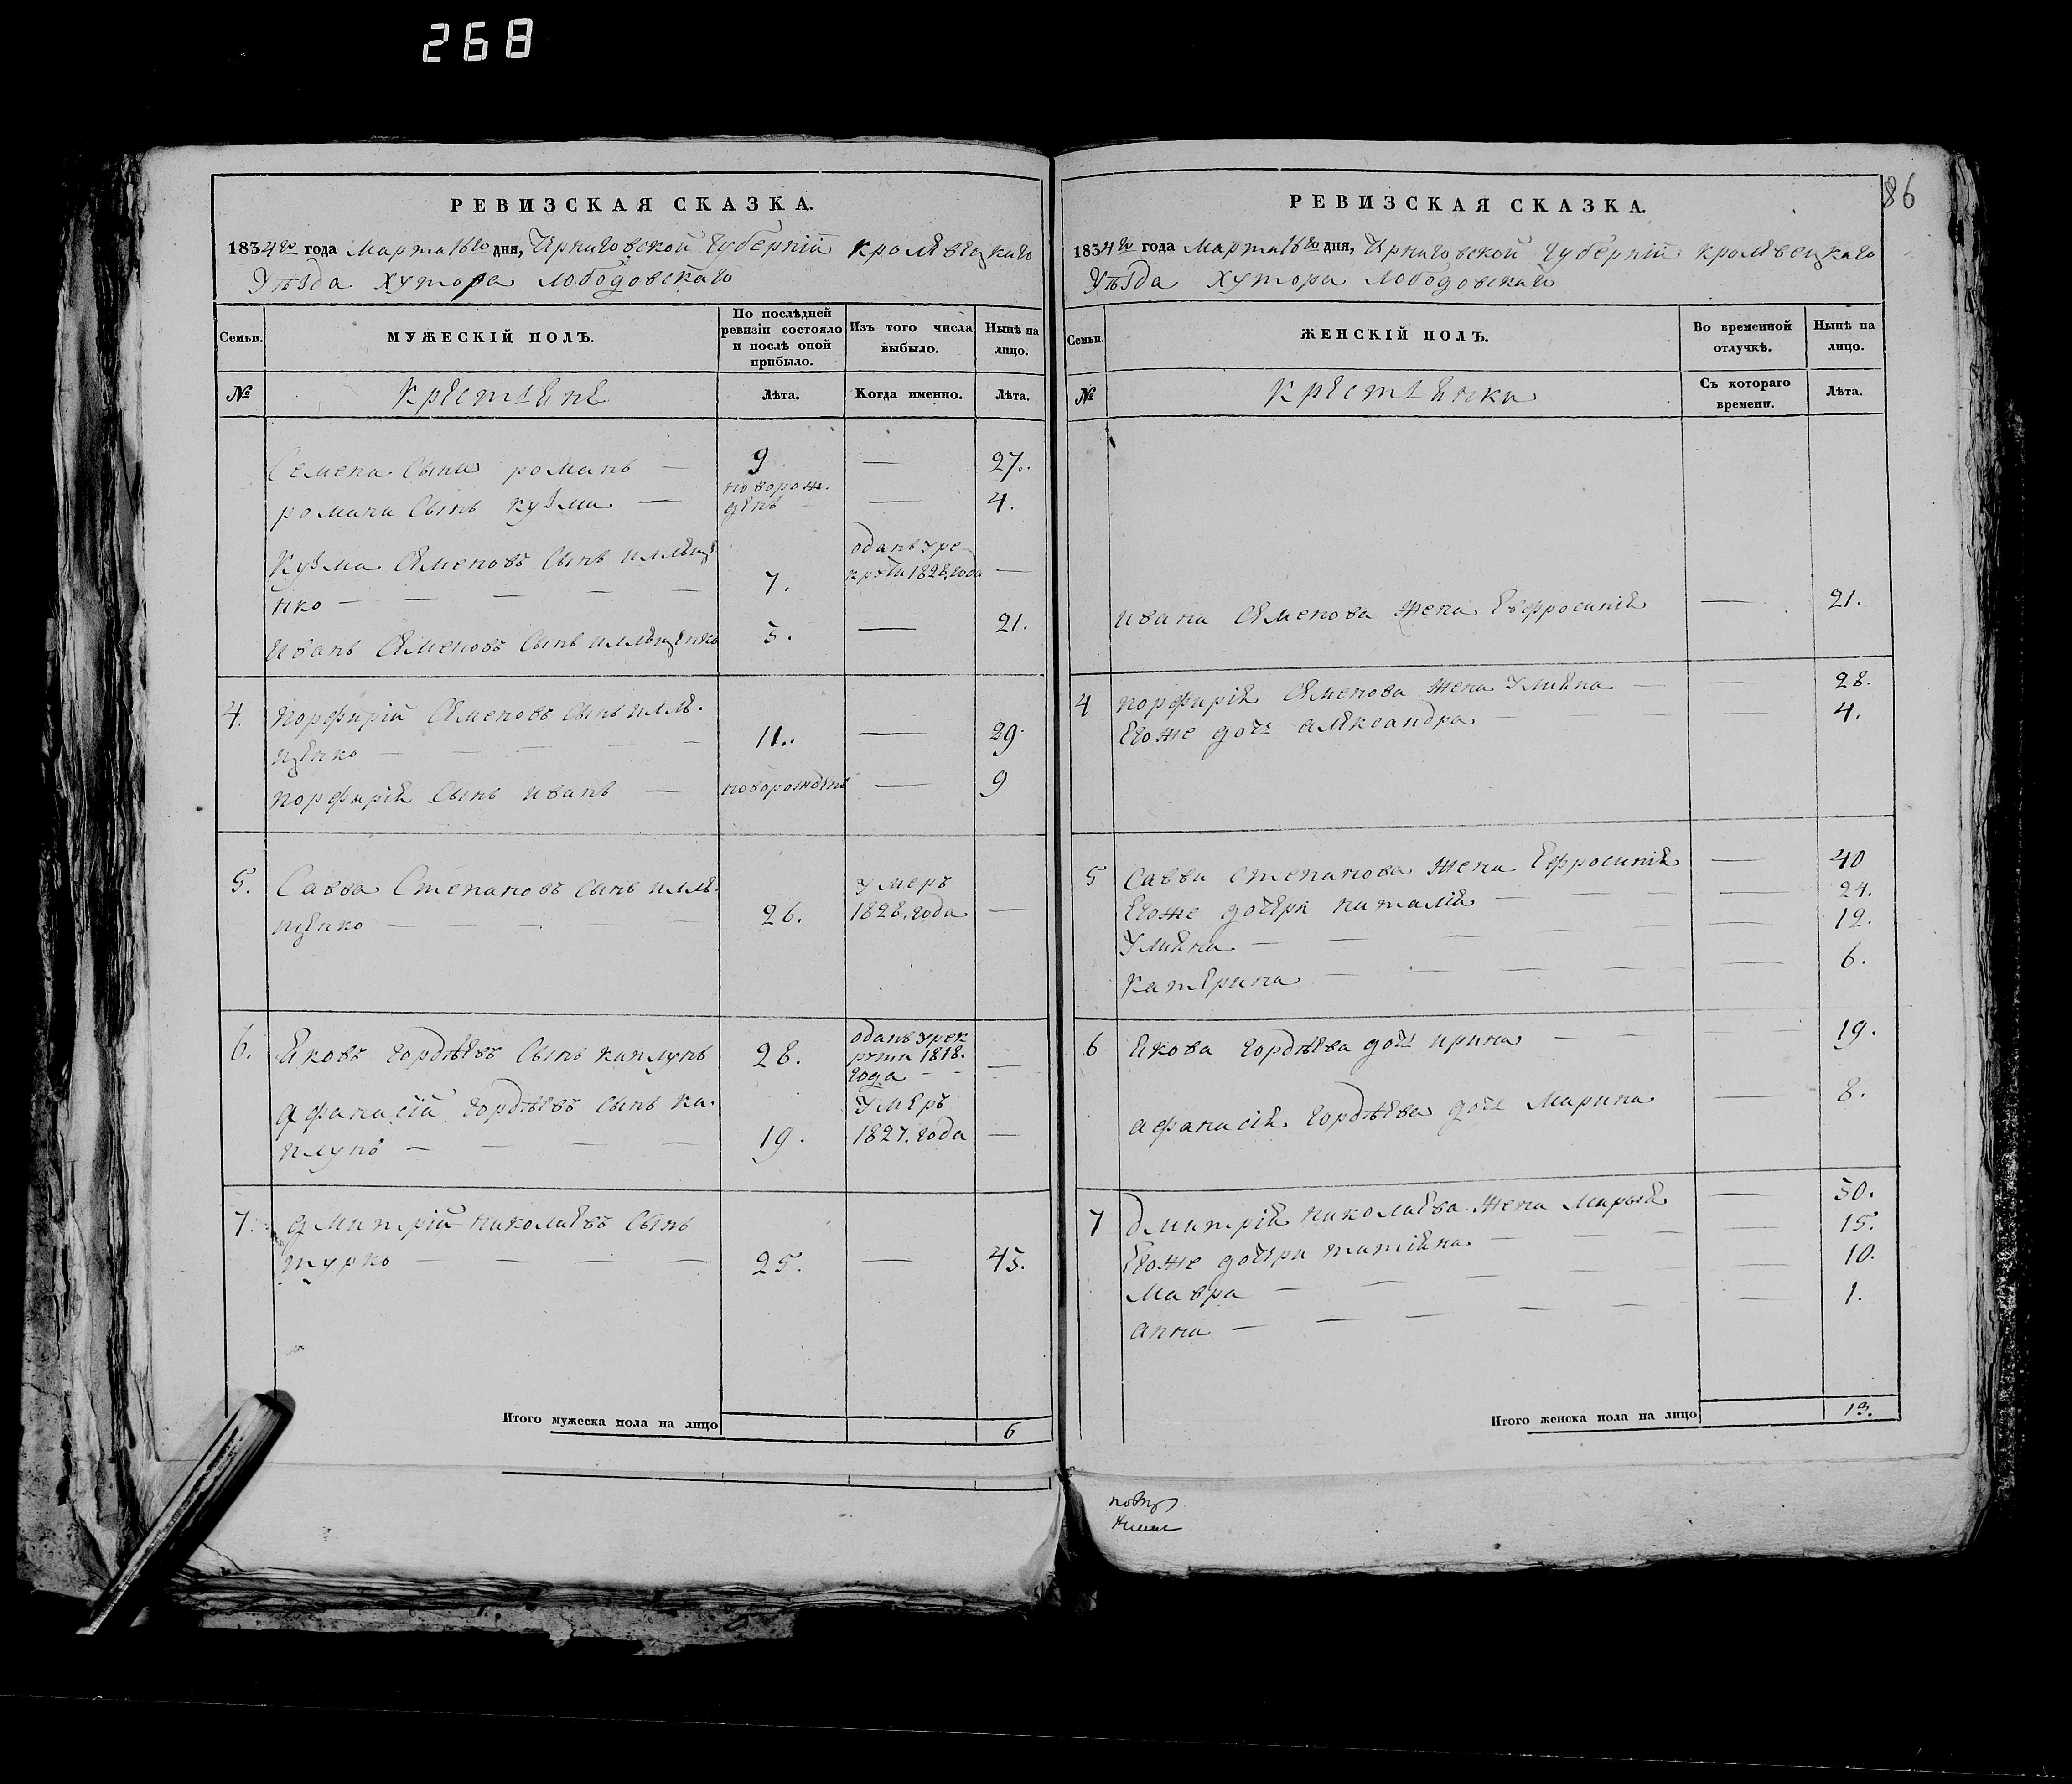 268
РЕВИЗСКАЯ СКАЗКА.
1834го года Марта 16го дня, Черниговской Губернии Кролевецкаго
Уезда Хутора Лободовскаго
Семьи. МУЖЕСКІЙ ПОЛЪ. По послѣдней ревизіи состояло и послѣ оной прибыло. Изъ того числа выбыло. Нынѣ на лицо.
№ Крестяне Лѣта. Когда именно. Лѣта.
Семена сынъ романъ — 9 — 27.
романа сынъ кузма — новорожденъ — 4.
Кузма Семеновъ сынъ
нко — 7. одан у рекруты 1828. года —
Иванъ Семеновъ сынъ 3. — 21.
4. Порфирій Семеновъ сынъ
щенко — 11. — 29.
порфирія сынъ иванъ — новорожденъ — 9
5. Савва Степановъ сынъ
щенко — 26. Умеръ 1828. года —
6. Яковъ Гордѣевъ сынъ каплунъ 28. оданъ у рекруты 1818. года —
Афанасій Гордѣевъ сынъ ка-
плунъ — 19. Умеръ 1827. года —
7. Дмитрій николаевъ сынъ
турко — 25. — 45.
Итого мужеска пола на лицо 6
86
РЕВИЗСКАЯ СКАЗКА.
1834го года Марта 16го дня, Черниговской Губернии Кролевецкаго
Уезда Хутора Лободовскаго
Семьи. ЖЕНСКІЙ ПОЛЪ. Во временной отлучкѣ. Нынѣ на лицо.
№ Крестянки Съ котораго времени. Лѣта.
Ивана Семенова жена Ефросинія — 21.
4 порфирія Семенова жена Уляна — 28.
Егоже дочь александра — 4.
5 Савви степанова жена Ефросинія — 40
Егоже дочери наталія — 24.
Уляна — 12.
Катерина — 6.
6 Якова Гордѣева дочь ирина — 19.
афанасія Гордѣева дочь Марина — 8.
7 Дмитрія николаева жена Марья — 50.
Егоже дочери татіяна — 15.
Мавра — 10.
анна — 1.
Итого женска пола на лицо 13.